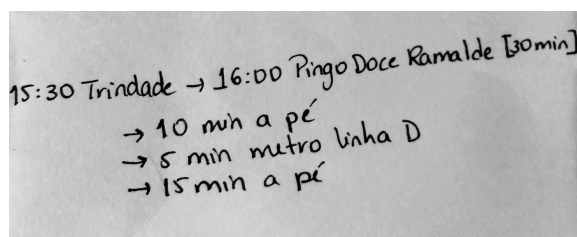 15:30 Trindade → 16:00 Pingo Doce Ramalde [30min]
→ 10 min a pé
→ 5 min metro linha D
→ 15 min a pé